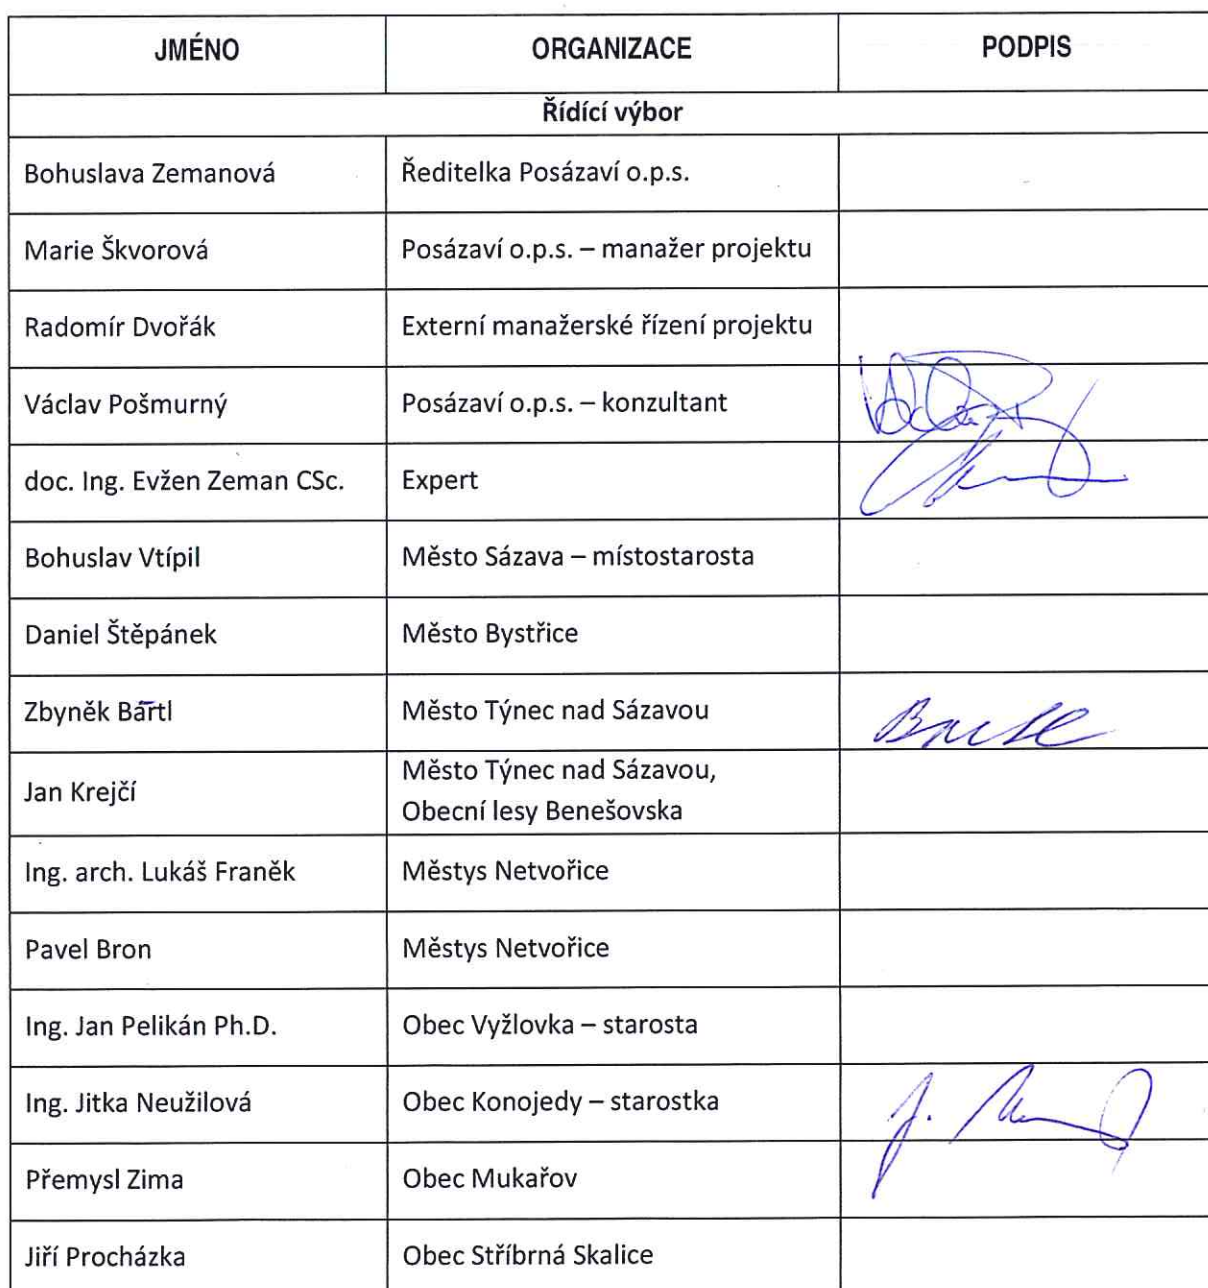 JMÉNO ORGANIZACE PODPIS
Řídící výbor
Bohuslava Zemanová Ředitelka Posázaví o.p.s.
Marie Škvorová Posázaví o.p.s. – manažer projektu
Radomír Dvořák Externí manažerské řízení projektu
Václav Pošmurný Posázaví o.p.s. – konzultant
doc. Ing. Evžen Zeman CSc. Expert
Bohuslav Vtípil Město Sázava – místostarosta
Daniel Štěpánek Město Bystřice
Zbyněk Bártl Město Týnec nad Sázavou
Jan Krejčí Město Týnec nad Sázavou,
Obecní lesy Benešovska
Ing. arch. Lukáš Franěk Městys Netvořice
Pavel Bron Městys Netvořice
Ing. Jan Pelikán Ph.D. Obec Vyžlovka – starosta
Ing. Jitka Neužilová Obec Konojedy – starostka
Přemysl Zima Obec Mukařov
Jiří Procházka Obec Stříbrná Skalice